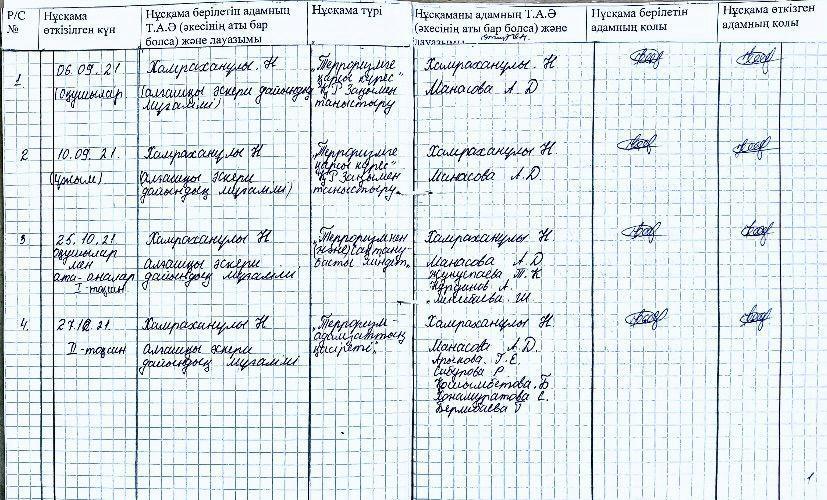 Р/С
№
Нұсқама
өткізілген күн
Нұсқама берілетін адамның
Т.А.Ә (әкесінің аты бар
болса) және дауазымы
Нұсқама түрі
Нұсқаманы адамның Т.А.Ә
(әкесінің аты бар болса) және
дауазымы
Нұсқама берілетін
адамның қолы
Нұсқама өткізген
адамның қолы
1
06.09.21
(оқушылар
Хамраханұлы. Н
(алғашқы әскери дайындық
мұғалімі)
"Терроризмге
қарсы күрес"
ҚР Заңымен
таныстыру
Хамраханұлы. Н
Манасова А Д
2
10.09.21.
(ұжым)
Хамраханұлы Н
(алғашқы әскери
дайындық мұғалімі)
"Терроризмге
қарсы күрес"
ҚР Заңымен
таныстыру"
Хамраханұлы Н
Манасова А Д
3
25.10.21
оқушылар
мен
ата-аналар
I-тоқсан
Хамраханұлы Н
алғашқы әскери
дайындық мұғалімі
"Терроризмнен
сақтану-
Хамраханұлы Н
Манасова А Д
Нурданов А.
4.
27.12.21
II-тоқсан
Хамраханұлы Н
алғашқы әскери
дайындық мұғалімі
"Терроризм-
адамзаттың
қасіреті"
Хамраханұлы Н
Манасова А Д.
Арынова. Г. Е
Сабурова Р
Қошымбетова. Б
Қонамуратова С.
Берлибаева Г
1